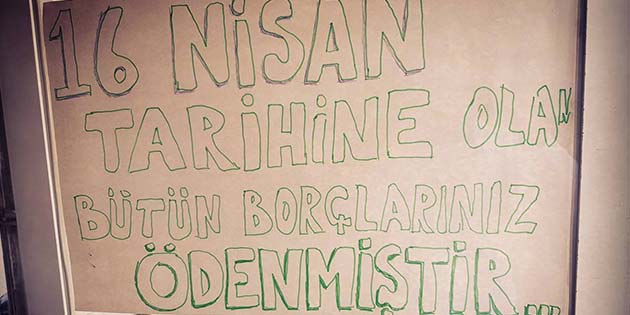 16 NİSAN
TARİHİNE OLAN
BÜTÜN BORÇLARINIZ
ÖDENMİŞTİR...